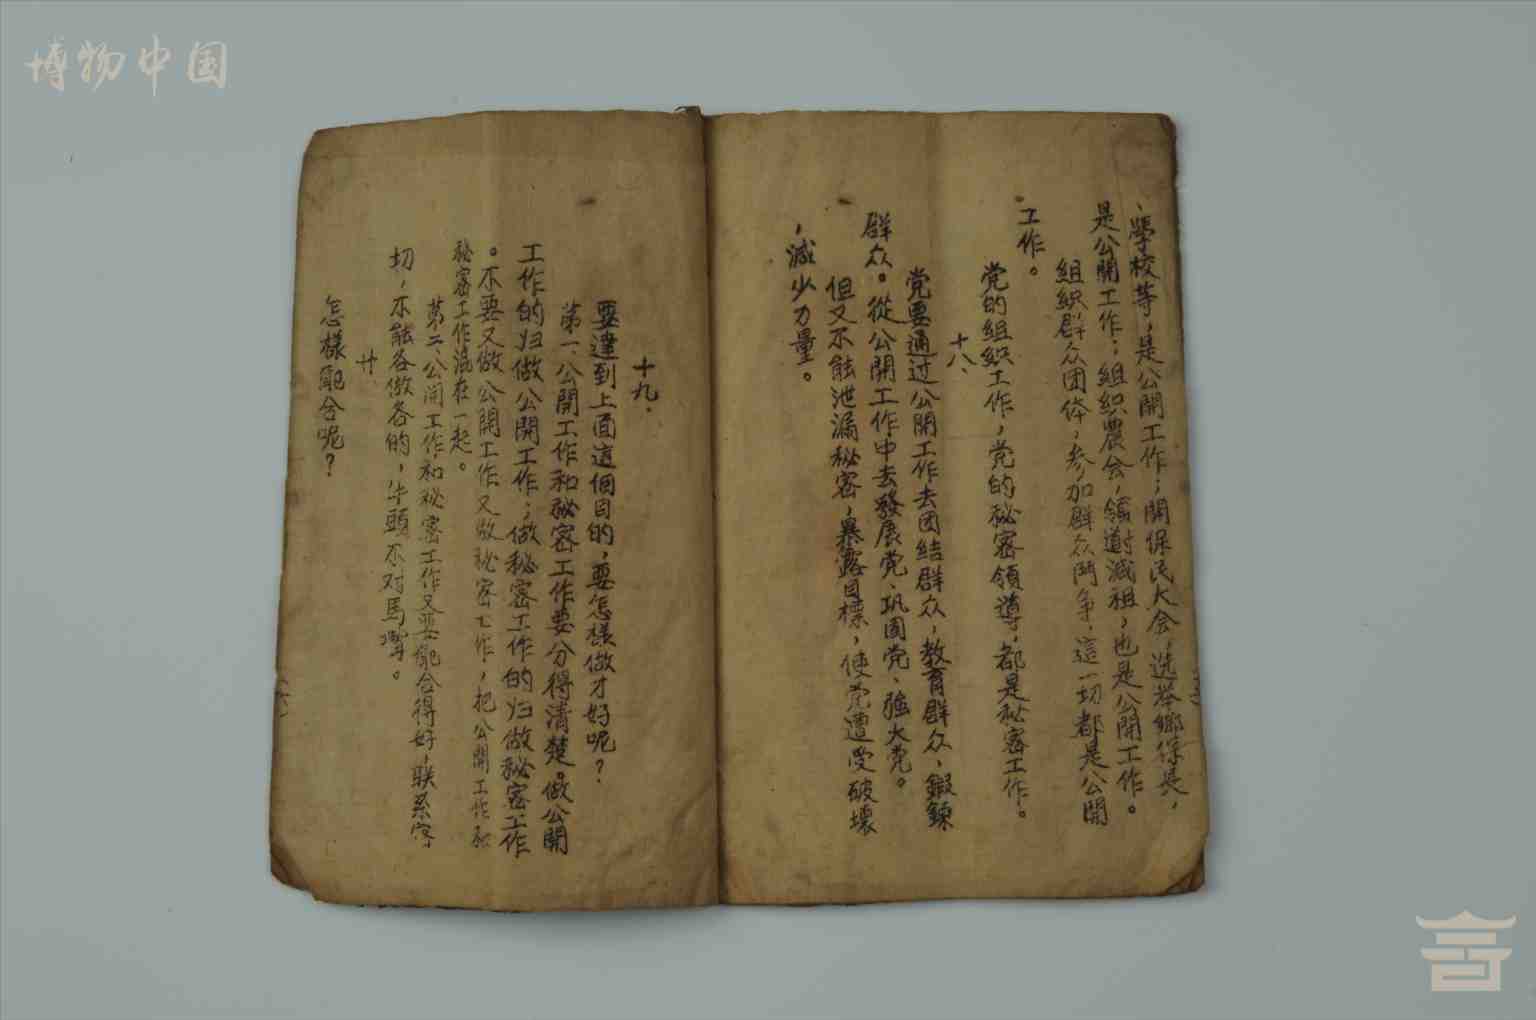 博物中国
、學校等，是公開工作；開保民大会，选举鄉保長，
是公開工作；組織農会，領導減租，也是公開工作。
組織群众团体，参加群众鬥争，這一切都是公開
工作。
党的組織工作，党的秘密領導，都是秘密工作。
十八、
党要通过公開工作去团結群众，教育群众，鍛鍊
群众。從公開工作中去發展党、巩固党、強大党。
但又不能泄漏秘密，暴露目標，使党遭受破壞
，減少力量。
十九．
要達到上面這個目的，要怎樣做才好呢？
第一、公開工作和秘密工作要分得清楚。做公開
工作的归做公開工作；做秘密工作的归做秘密工作
。不要又做公開工作又做秘密工作，把公開工作和
秘密工作混在一起。
第二、公開工作和秘密工作又要配合得好，联系密
切，不能各做各的，牛頭不对馬嘴。
廿、
怎樣配合呢？